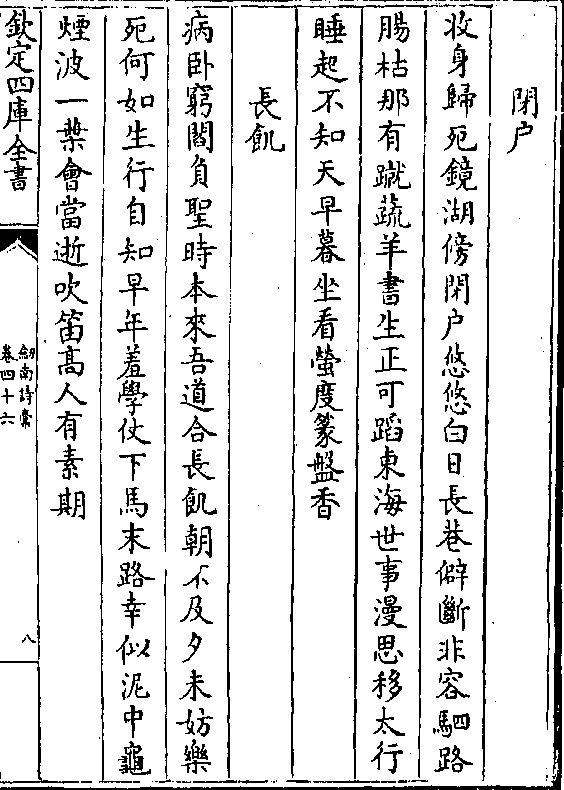 閉户
收身歸死鏡湖傍閉户悠悠白日長巷僻斷非容駟路
腸枯那有蹴蔬羊書生正可蹈東海世事漫思移太行
睡起不知天早暮坐看螢度篆盤香
長飢
病卧窮閻負聖時本來吾道合長飢朝不及夕未妨樂
死何如生行自知早年羞學仗下馬末路幸似泥中龜
煙波一葉會當逝吹笛髙人有素期
欽定四庫全書
劒南詩槀
卷四十六
八